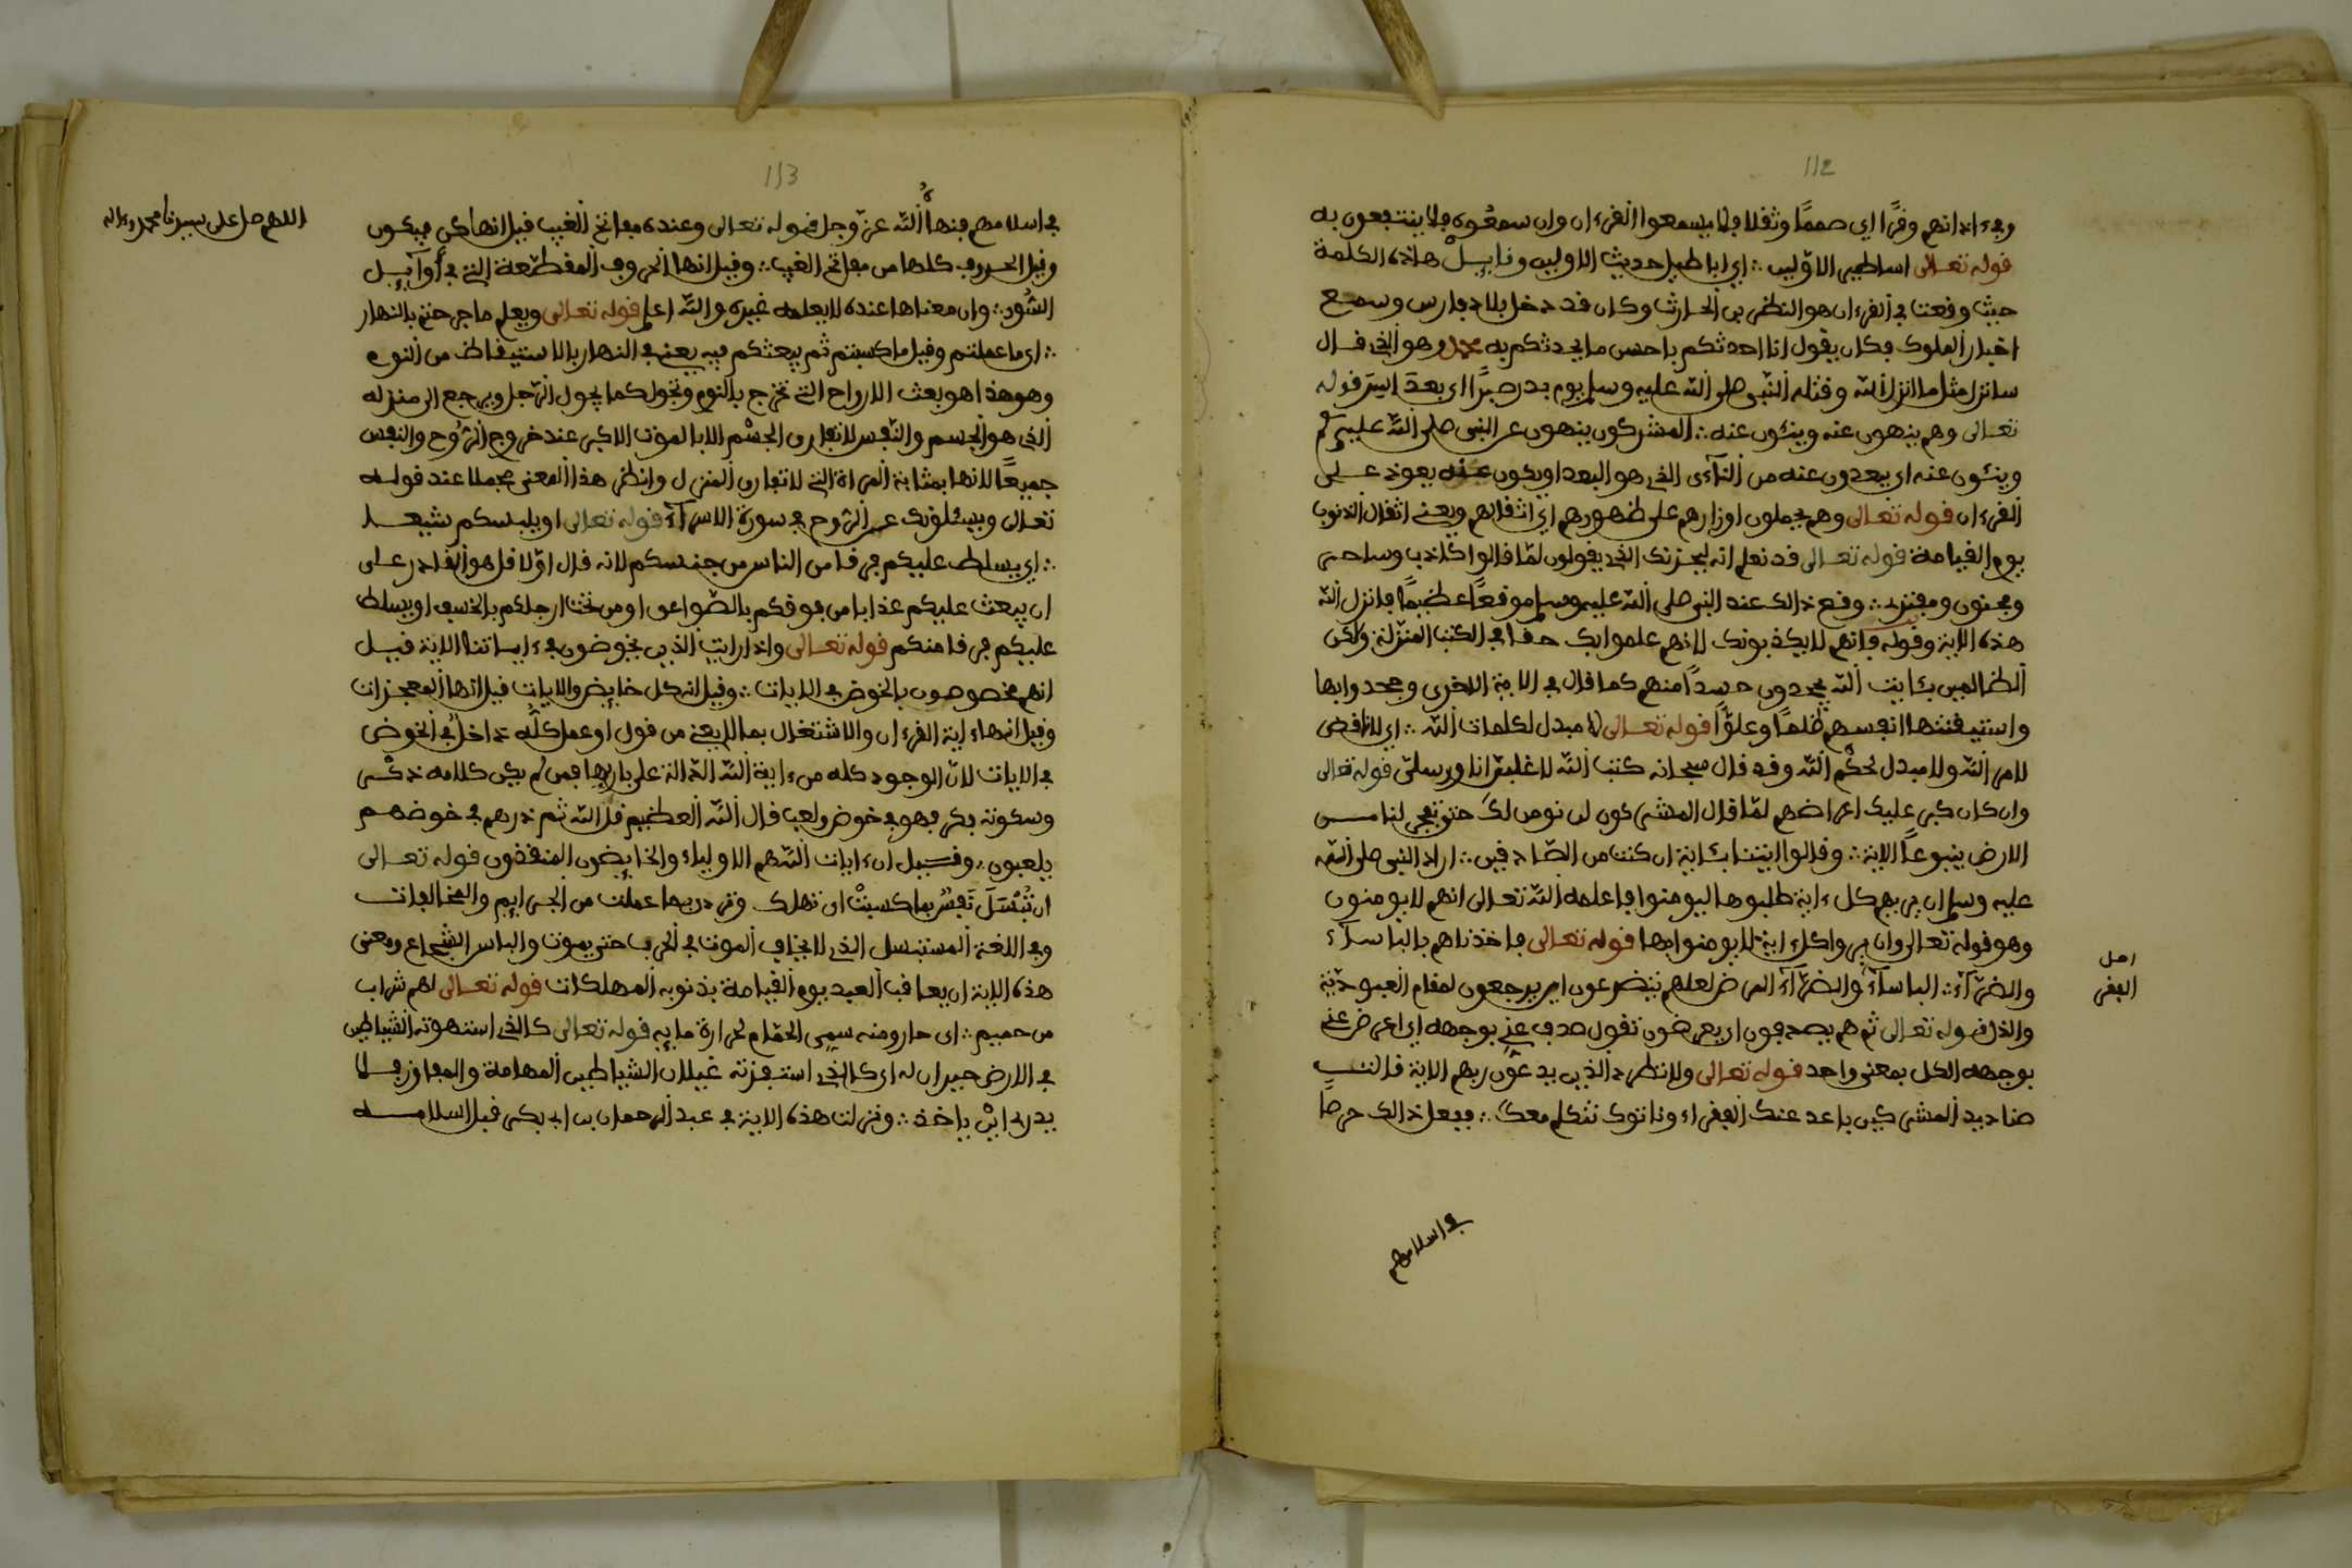 112
وفي ءاذانهم وقرًا اي صممًا وثقلا فلا يسمعوا القرءان وان سمعوه فلا ينتفعون به
قوله تعالى اساطير الاوّلين ∴ اي اباطيل حديث الاولين وقايل هاذه الكلمة
حيث وقعت في القرءان هو النظر بن الحارث وكان قد دخل بلاد فارس وسمع
اخبار الملوك فكان يقول انا احدثكم باحسن ما يحدثكم به محمد وهو الذي قال
سانزل مثل ما انزل الله وقتله النّبي صلى الله عليه وسلم يوم بدر صبرًا اي بعد اسر قوله
تعالى وهم ينهون عنه وينئون عنه ∴ المشركون ينهون عن النبي صلى الله عليه وسلم
وينئون عنه اي يبعدون عنه من النأى الذي هو البعد او يكون عنه يعود على
القرءان قوله تعالى وهم يحملون اوزارهم على ظهورهم اي اثقالهم ويعني اثقال الذنوب
يوم القيامة قوله تعالى قد نعلم انه ليحزنك الذي يقولون لمّا قالوا كاذب وساحر
ومجنون ومفتر ∴ وقع ذالك عند النبي صلى الله عليه وسلم موقعًا عظيمًا فانزل الله
هذه الاية وقوله فانهم لا يكذبونك لانهم علموا بك حقا في الكتب المنزلة ولكن
الظالمين بئايت الله يجحدون حسدًا منهم كما قال في الاية الاخرى وجحدوا بها
واستيقنتها انفسهم ظلمًا وعلوًّا قوله تعالى لا مبدل لكلمات الله ∴ اي لا ناقض
لامر الله ولا مبدل لحكم الله وقد قال سبحانه كتب الله لاغلبن انا ورسلي قوله تعالى
وان كان كبر عليك اعراضهم لمّا قال المشركون لن نومن لك حتى تفجر لنا من
الارض ينبوعًا الاية ∴ وقالوا ايتنا بئاية ان كنت من الصّادقين ∴ اراد النبي صلى الله
عليه وسلم ان يريهم كل ءاية طلبوها ليومنوا فاعلمه الله تعالى انهم لا يومنون
وهو قوله تعالى وان يروا كل ءاية لا يومنوا بها قوله تعالى فاخذناهم بالباسآء
والضرّآء ∴ الباسآء والضرّآء المرض لعلهم يتضرعون اي يرجعون لمقام العبوديّة
والذل قوله تعالى ثم هم يصدفون اي يعرضون تقول صدف عني بوجهه اي اعرض عني
بوجهه الكل بمعنى واحد قوله تعالى ولا تطرد الذين يدعون ربهم الاية قالت
صناديد المشركين باعد عنك الفقراء وناتوك نتكلم معك ∴ ففعل ذالك حرصا
اهل
الفقر
في اسلامهم
113
في اسلامهم فنهاه الله عزّ وجل قوله تعالى وعنده مفاتح الغيب قيل انها كن فيكون
وقيل الحروف كلها من مفاتح الغيب ∴ وقيل انها الحروف المقطّعة التي في أوآيل
السُّور ∴ وان معناها عنده لا يعلمه غيره والله اعلم قوله تعالى ويعلم ما جرحتم بالنهار
∴ اي ما عملتم وقيل ما كسبتم ثم يبعثكم فيه يعني في النهار بالاستيقاظ من النوم
وهو هذا هو بعث الارواح التي تخرج بالنوم وتجول كما يجول الرّجل ويرجع الى منزله
الذي هو الجسم والنّفس لا تفارق الجسم الا بالموت الاكبر عند خروج الرُّوح والنفس
جميعًا لانها بمثابة المراة التي لا تفارق المنزل وانظر هذا المعنى مجملا عند قوله
تعالى ويسئلونك عن الرّوح في سورة الاسرآء قوله تعالى او يلبسكم شيعا
∴ اي يسلط عليكم فرقا من الناس من جنسكم لانه قال اوّلا قل هو القادر على
ان يبعث عليكم عذابا من فوقكم بالصّواعق او من تحت ارجلكم بالخسف او يسلط
عليكم فرقا منكم قوله تعالى واذا رايت الذين يخوضون في ءاياتنا الاية قيل
انهم مخصوصون بالخوض في الايات ∴ وقيل انه كل خايض والايات قيل انها المعجزات
وقيل انها ءاية القرءان والاشتغال بما لا يعني من قول او عمل كلّه داخل في الخوض
في الايات لانّ الوجود كله من ءاية الله الدالة على باريها فمن لم يكن كلامه ذكر
وسكوته فكر فهو في خوض ولعب قال الله العظيم قل الله ثم ذرهم في خوضهم
يلعبون ∴ وقيل ان ءايات الله هم الاولياء والخايضون المنتقدون قوله تعالى
ان تُبْسَلَ نَفسٌ بما كسبت ان تهلك وترد بما عملت من الجرايم والمخالفات
وفي اللغة المستبسل الذي لا يخاف الموت في الحرب حتى يموت والباسل الشجاع ومعنى
هذه الاية ان يعاقب العبد يوم القيامة بذنوبه المهلكات قوله تعالى لهم شراب
من حميم ∴ اي حار ومنه سمي الحمّام لحرارة مايه قوله تعالى كالذي استهوته الشياطين
في الارض حيران له اي كالذي استفزته غيلان الشياطين المهامة والمفاوز فلا
يدري اين ياخذ ∴ ونزلت هذه الاية في عبد الرحمان بن ابي بكر قبل اسلامه
اللهم صل على سيدنا محمد وءاله